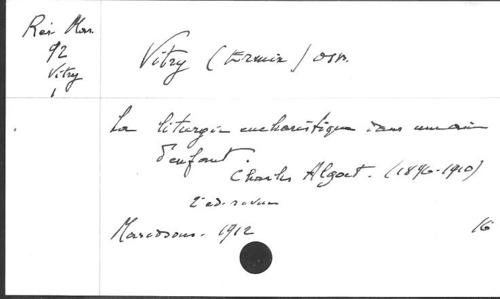 Rés Mar.
92
Vitry
1
Vitry (Ermin) OSB.
La liturgie eucharistique dans une vie
d'enfant.
Charles Algout. (1896-1910)
2e ed. revue
Maredsous - 1912
16